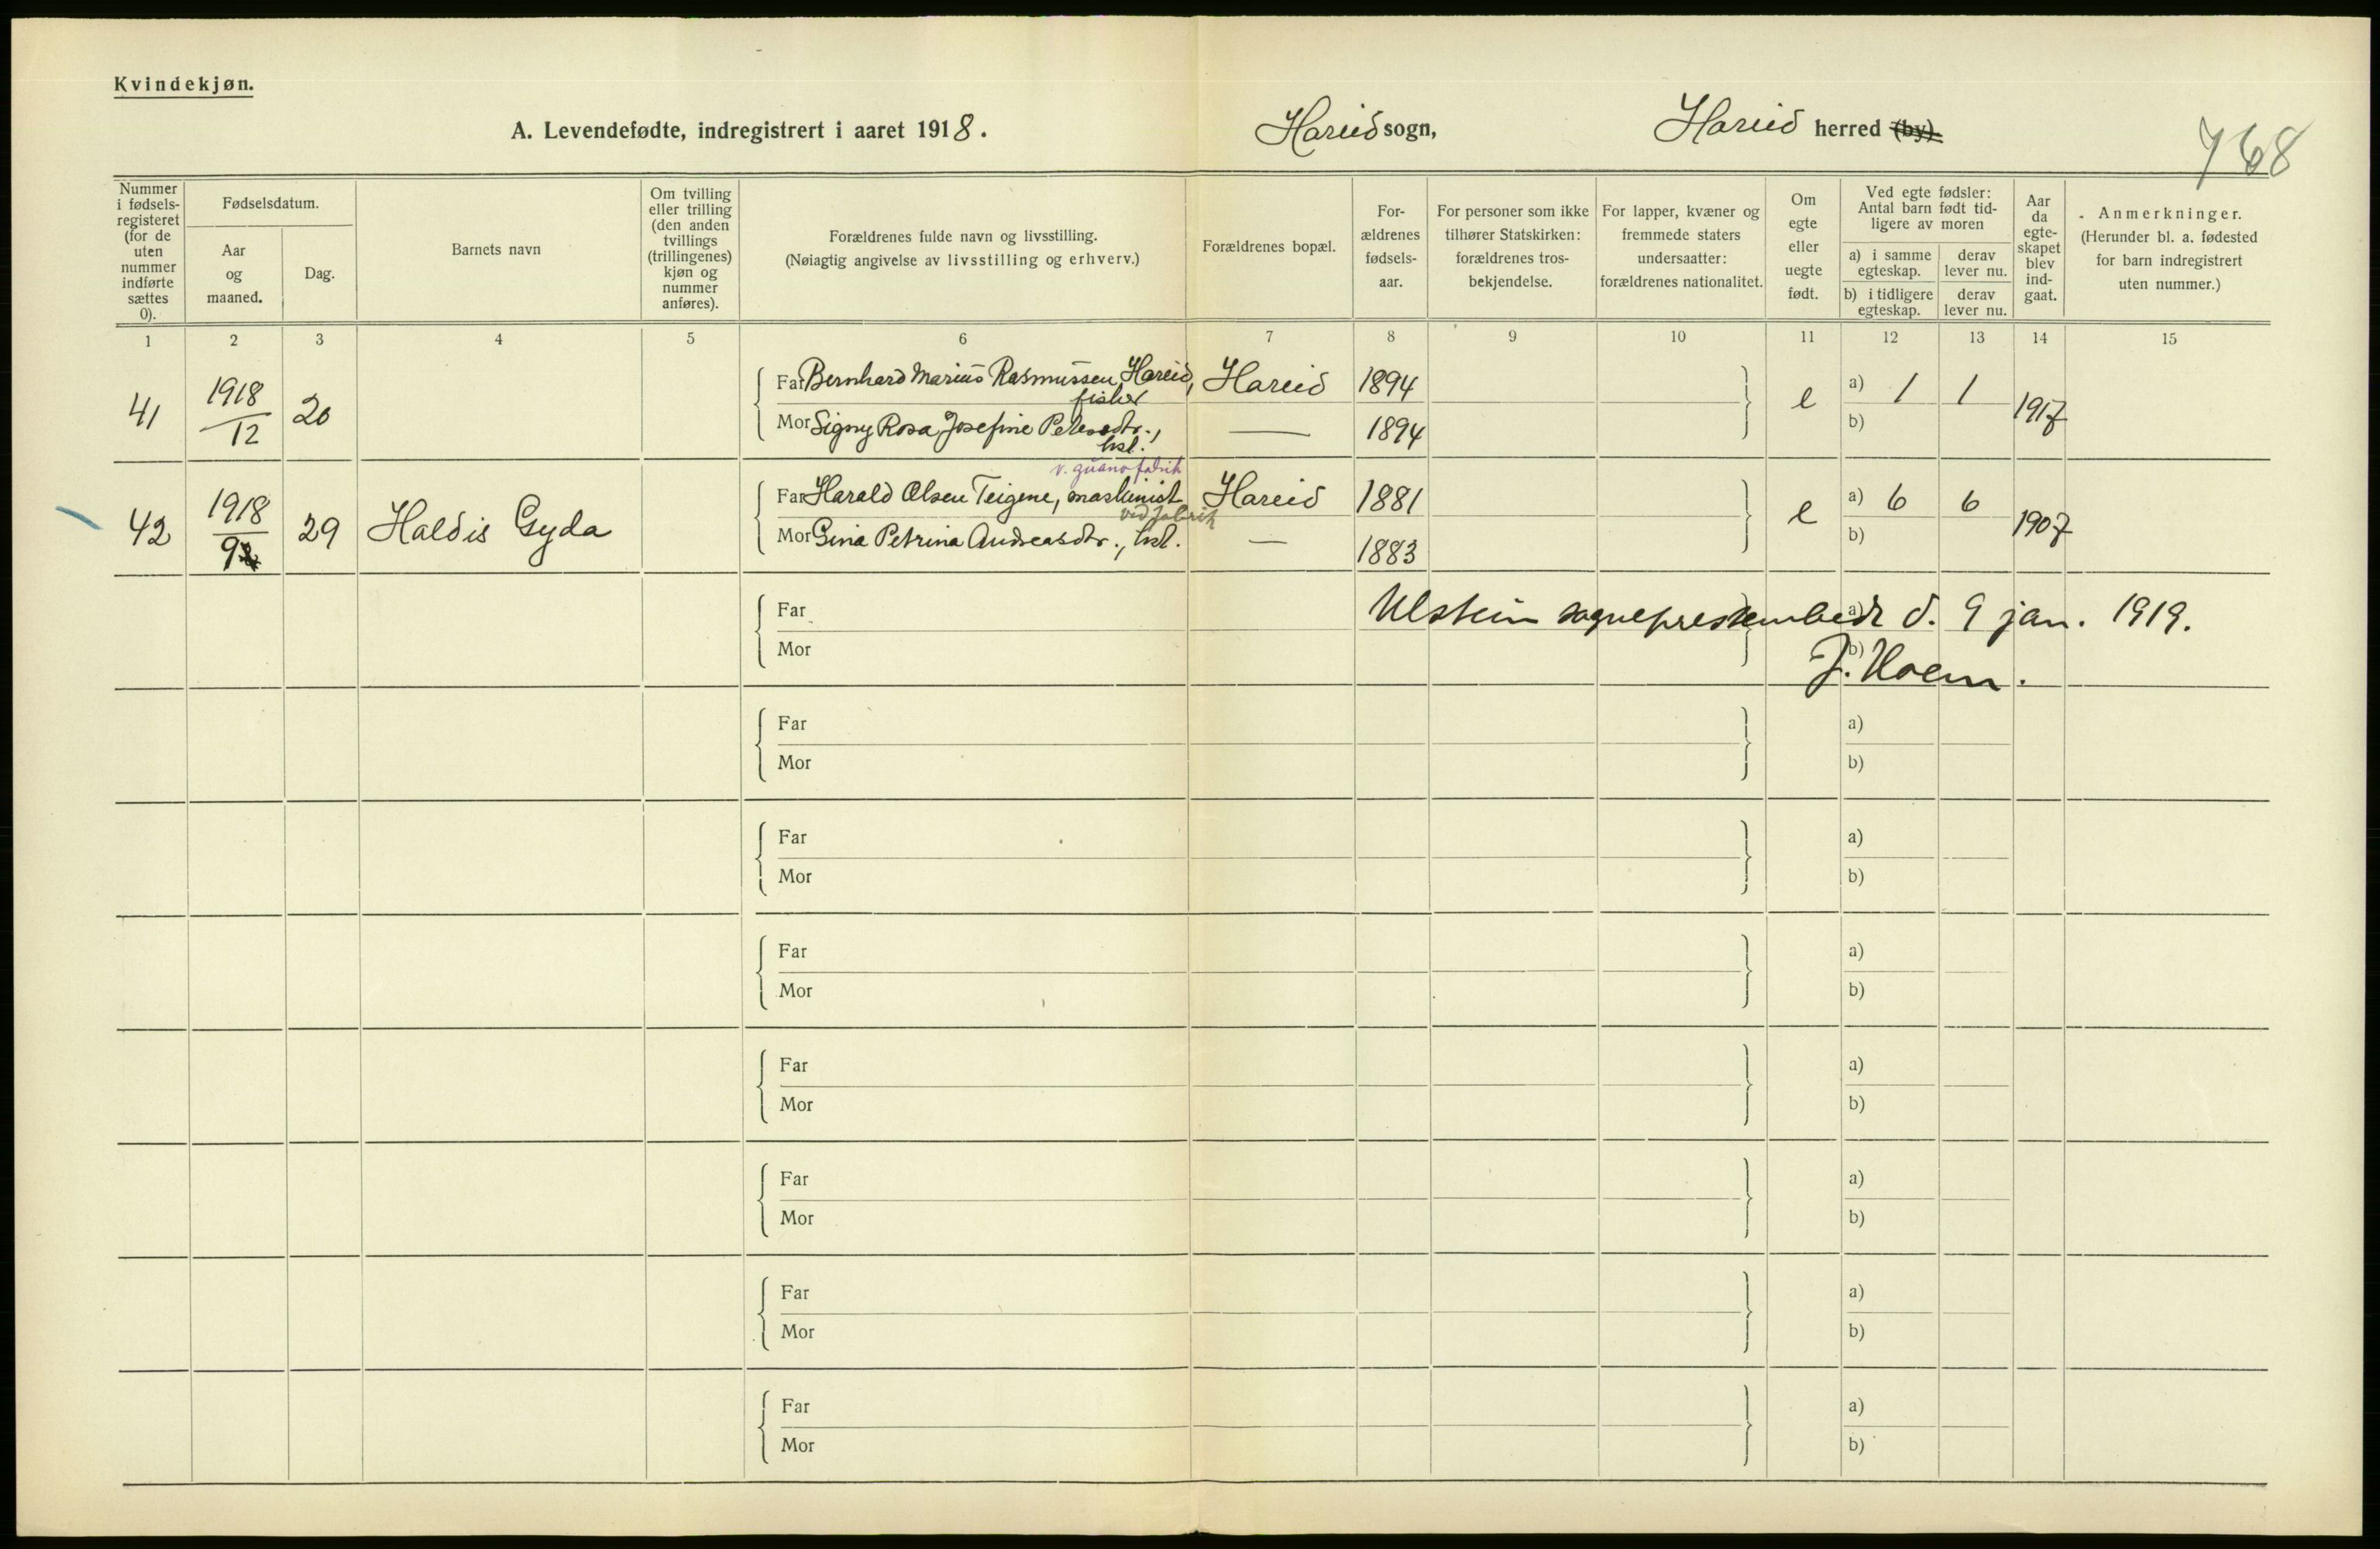 Kvindekjøn.
A. Levendefødte, indregistrert i aaret 1918. Hareid sogn, Hareid herred (by).
768
Nummer i fødsels-registeret (for de uten nummer indførte sættes 0).
Fødselsdatum.
Aar og maaned.
Dag.
Barnets navn
Om tvilling eller trilling (den anden tvillings (trillingenes) kjøn og nummer anføres).
Forældrenes fulde navn og livsstilling.
(Nøiagtig angivelse av livsstilling og erhverv.)
Forældrenes bopæl.
For-ældrenes fødsels-aar.
For personer som ikke tilhører Statskirken: forældrenes tros-bekjendelse.
For lapper, kvæner og fremmede staters undersaatter: forældrenes nationalitet.
Om egte eller uegte født.
Ved egte fødsler: Antal barn født tid-ligere av moren
a) i samme egteskap.
derav lever nu.
b) i tidligere egteskap.
derav lever nu.
Aar da egte-skapet blev ind-gaat.
Anmerkninger.
(Herunder bl. a. fødested for barn indregistrert uten nummer.)
1 2 3 4 5 6 7 8 9 10 11 12 13 14 15
41 1918/12 20 Far Bernhard Marius Rasmussen Hareid, fisker Hareid 1894 e a) 1 1 1917
Mor Signy Rosa Josefine Petersdtr., hst. — 1894 b)
v. guanofabrik
42 1918/9 29 Haldis Gyda Far Harald Olsen Teigene, maskinist ved fabrik Hareid 1881 e a) 6 6 1907
Mor Gina Petrina Andreasdtr., hst. — 1883 b)
Far Ulstein sogneprestembede d. 9 jan. 1919. a)
Mor J. Hoem. b)
Far a)
Mor b)
Far a)
Mor b)
Far a)
Mor b)
Far a)
Mor b)
Far a)
Mor b)
Far a)
Mor b)
Far a)
Mor b)